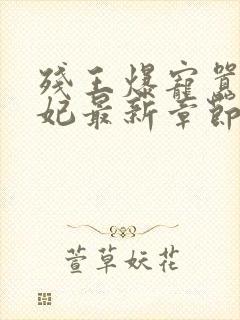 残王爆宠嚣
妃最新章节
萱草妖花